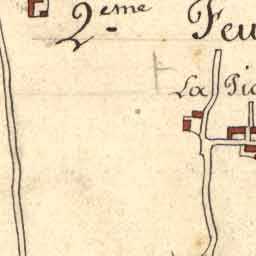 2.eme Feu
La Pic